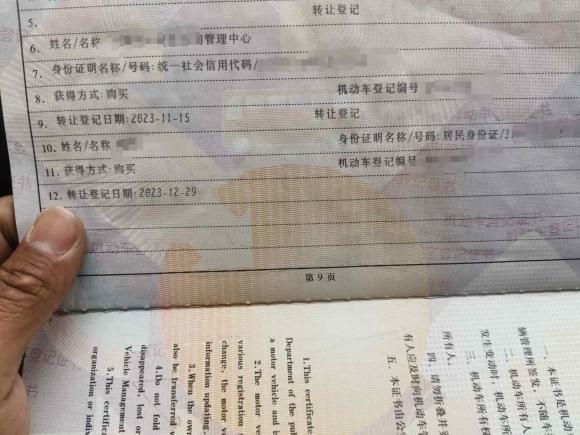 5. 转让登记
6. 姓名/名称 管理中心
7. 身份证明名称/号码:统一社会信用代码/
8. 获得方式:购买 机动车登记编号
9. 转让登记日期:2023-11-15 转让登记
10. 姓名/名称 身份证明名称/号码:居民身份证/3
11. 获得方式:购买 机动车登记编号
12. 转让登记日期:2023-12-29
第 9 页
一、本证书是机动
辆管理所签发,不随车
二、机动车所有人
发生变动时,机动车所
三、机动车所有权
所有人。
四、请勿折叠并妥
有人应及时向机动车管
五、本证书由公
1.This certificate
Department of the pub
a motor vehicle and i
2.The motor ve
various registration
change, the motor ve
information updating.
3.When the own
also be transferred
4.Do not fold
disappeared, lost or
Vehicle Management
5.This certifica
organization or indiv